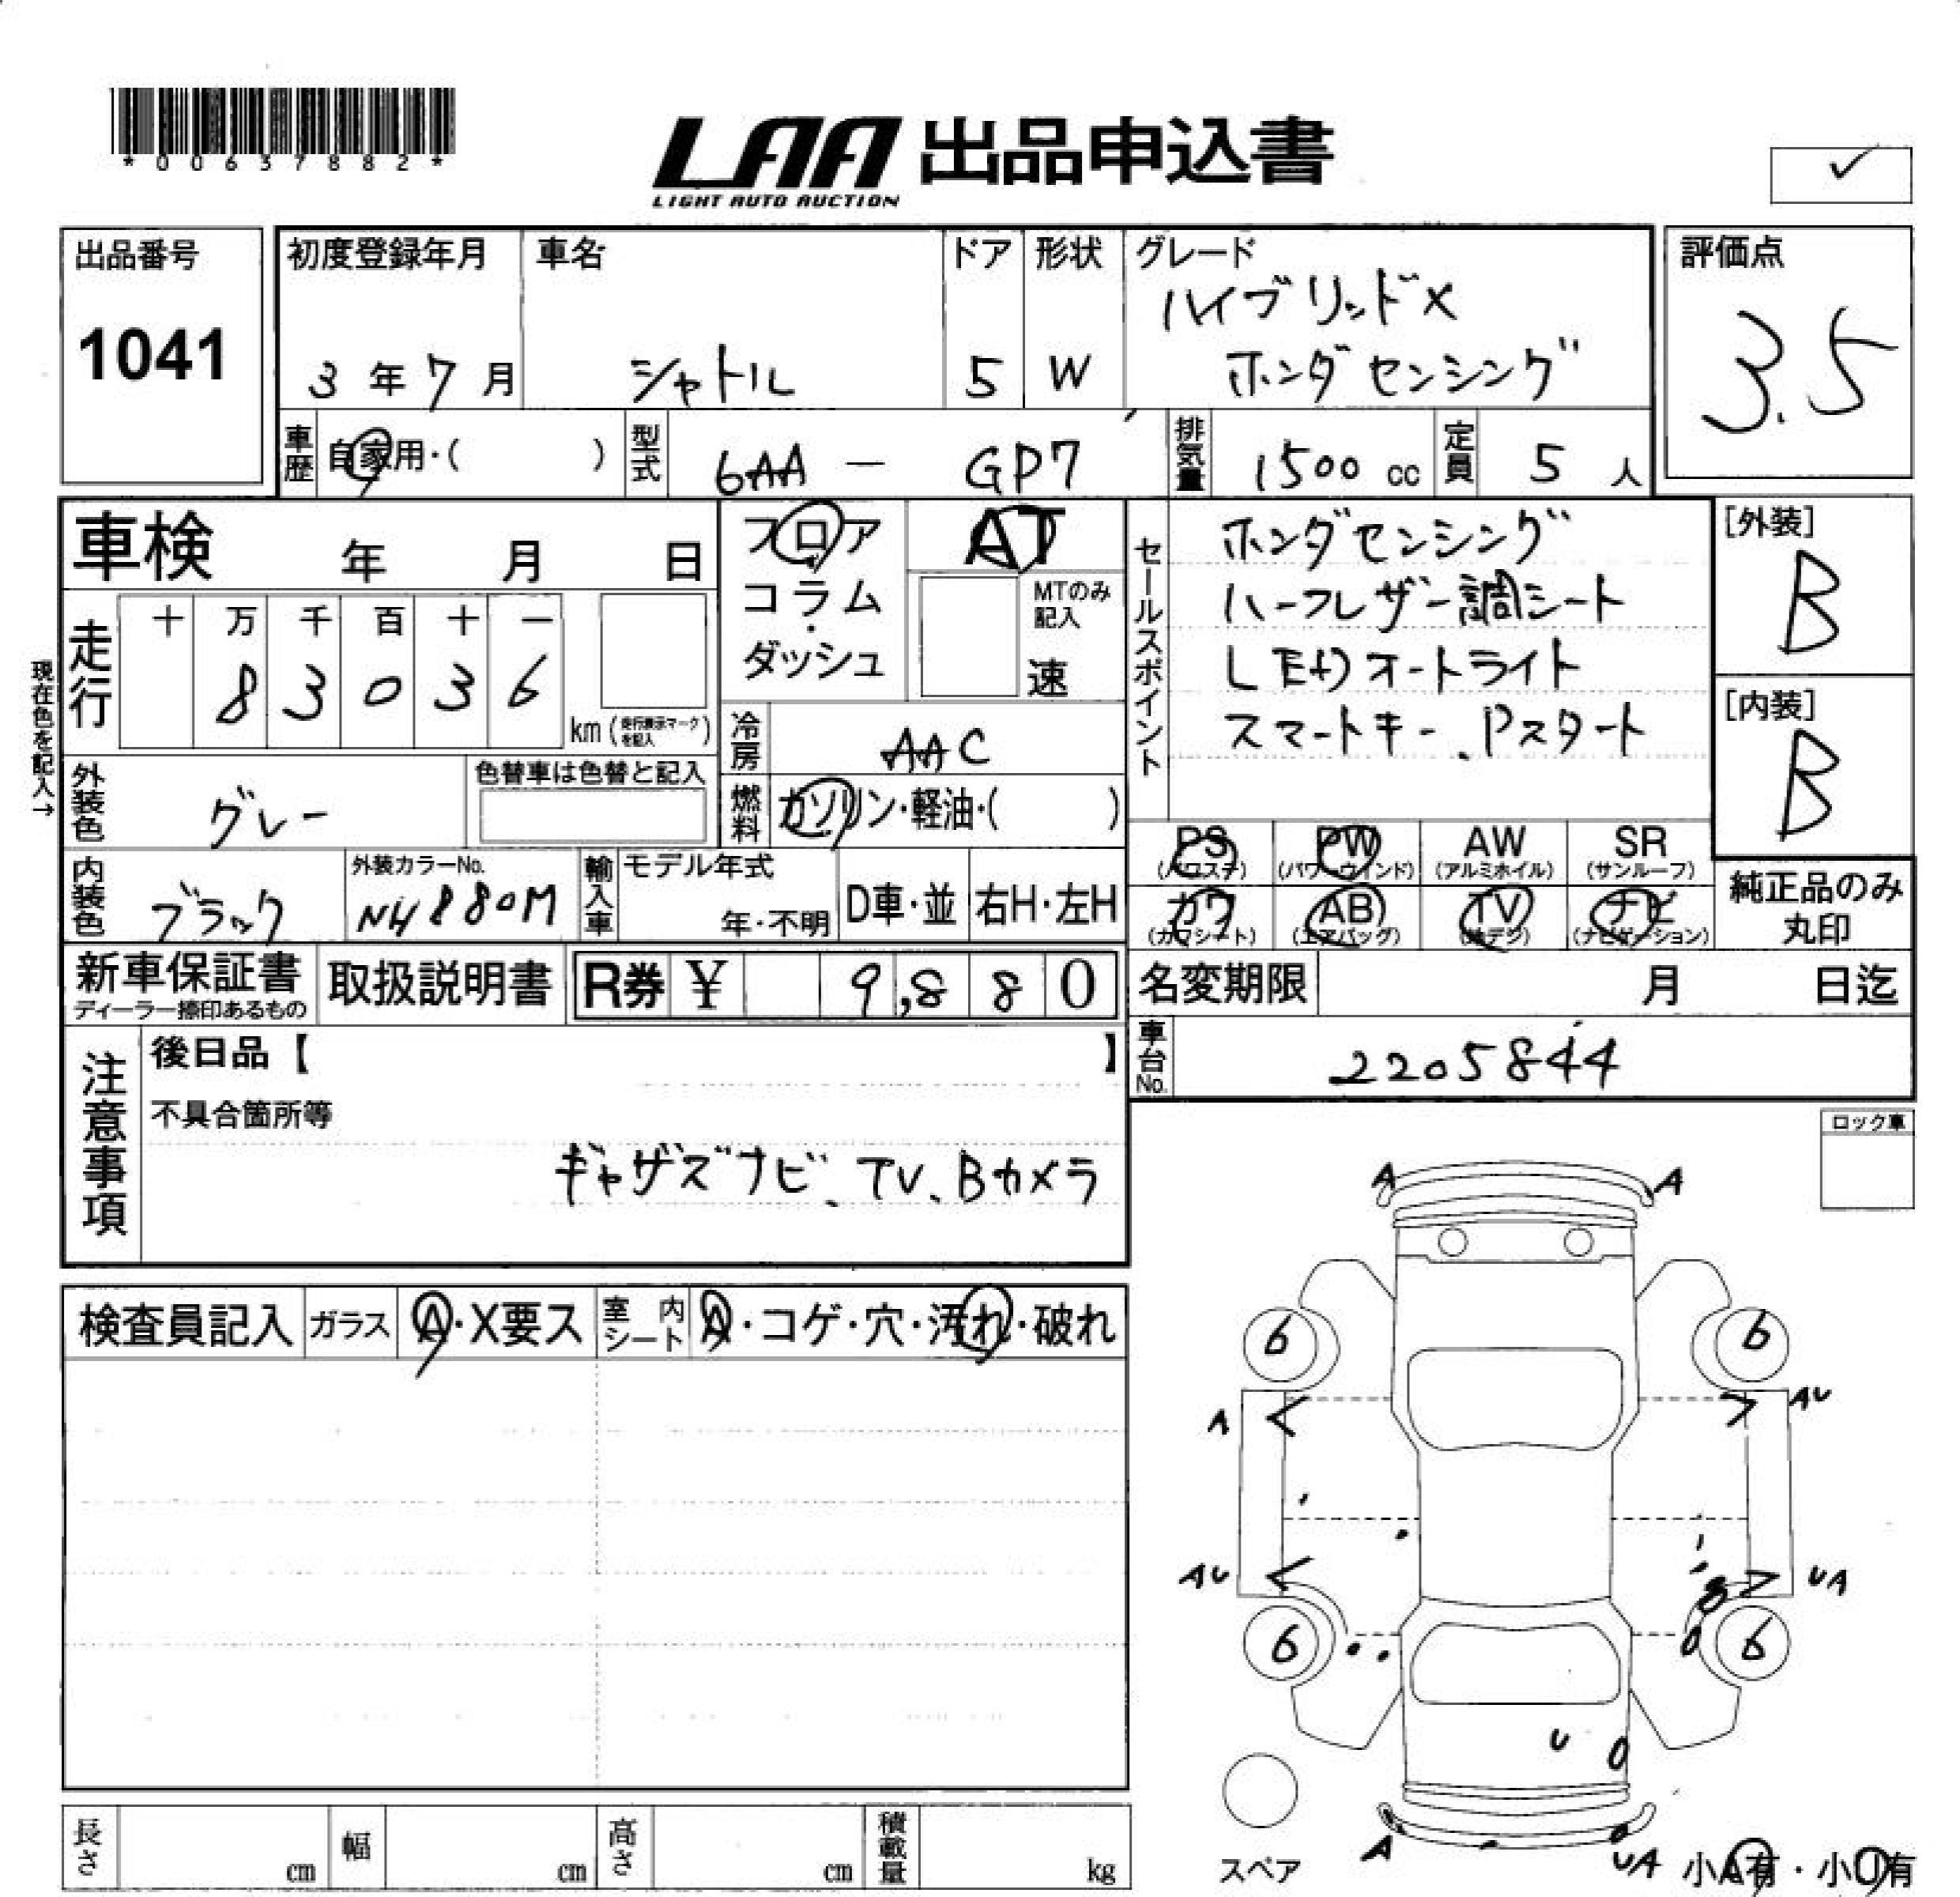 *00637882*
LAA 出品申込書
LIGHT AUTO AUCTION
✓
出品番号
1041
初度登録年月
3年7月
車名
シャトル
ドア
5
形状
W
グレード
ハイブリッドX
ホンダセンシング
評価点
3.5
車歴
自家用・( )
型式
6AA — GP7
排気量
1500 cc
定員
5 人
車検 年 月 日
フロア
コラム
ダッシュ
AT
MTのみ
記入
速
セールスポイント
ホンダセンシング
ハーフレザー調シート
LEDオートライト
スマートキー、Pスタート
[外装]
B
[内装]
B
現在色を記入→
走行
十 万 千 百 十 一
8 3 0 3 6
km (走行表示マークを記入)
冷房
AAC
燃料
ガソリン・軽油・( )
外装色
グレー
色替車は色替と記入
内装色
ブラック
外装カラーNo.
NH880M
輸入車
モデル年式
年・不明
D車・並
右H・左H
PS
(パワステ)
PW
(パワーウインド)
AW
(アルミホイル)
SR
(サンルーフ)
カワ
(カワシート)
AB
(エアバッグ)
TV
(地デジ)
ナビ
(ナビゲーション)
純正品のみ
丸印
新車保証書
ディーラー捺印あるもの
取扱説明書
R券 ¥ 9,880
名変期限 月 日迄
車台No.
2205844
注意事項
後日品【 】
不具合箇所等
ギャザズナビ、TV、Bカメラ
ロック車
検査員記入
ガラス
A・X要ス
室内シート
A・コゲ・穴・汚れ・破れ
A A
6 6
A AU
AU UA
6 6
U
A UA
スペア
小A有・小U有
長さ cm
幅 cm
高さ cm
積載量 kg